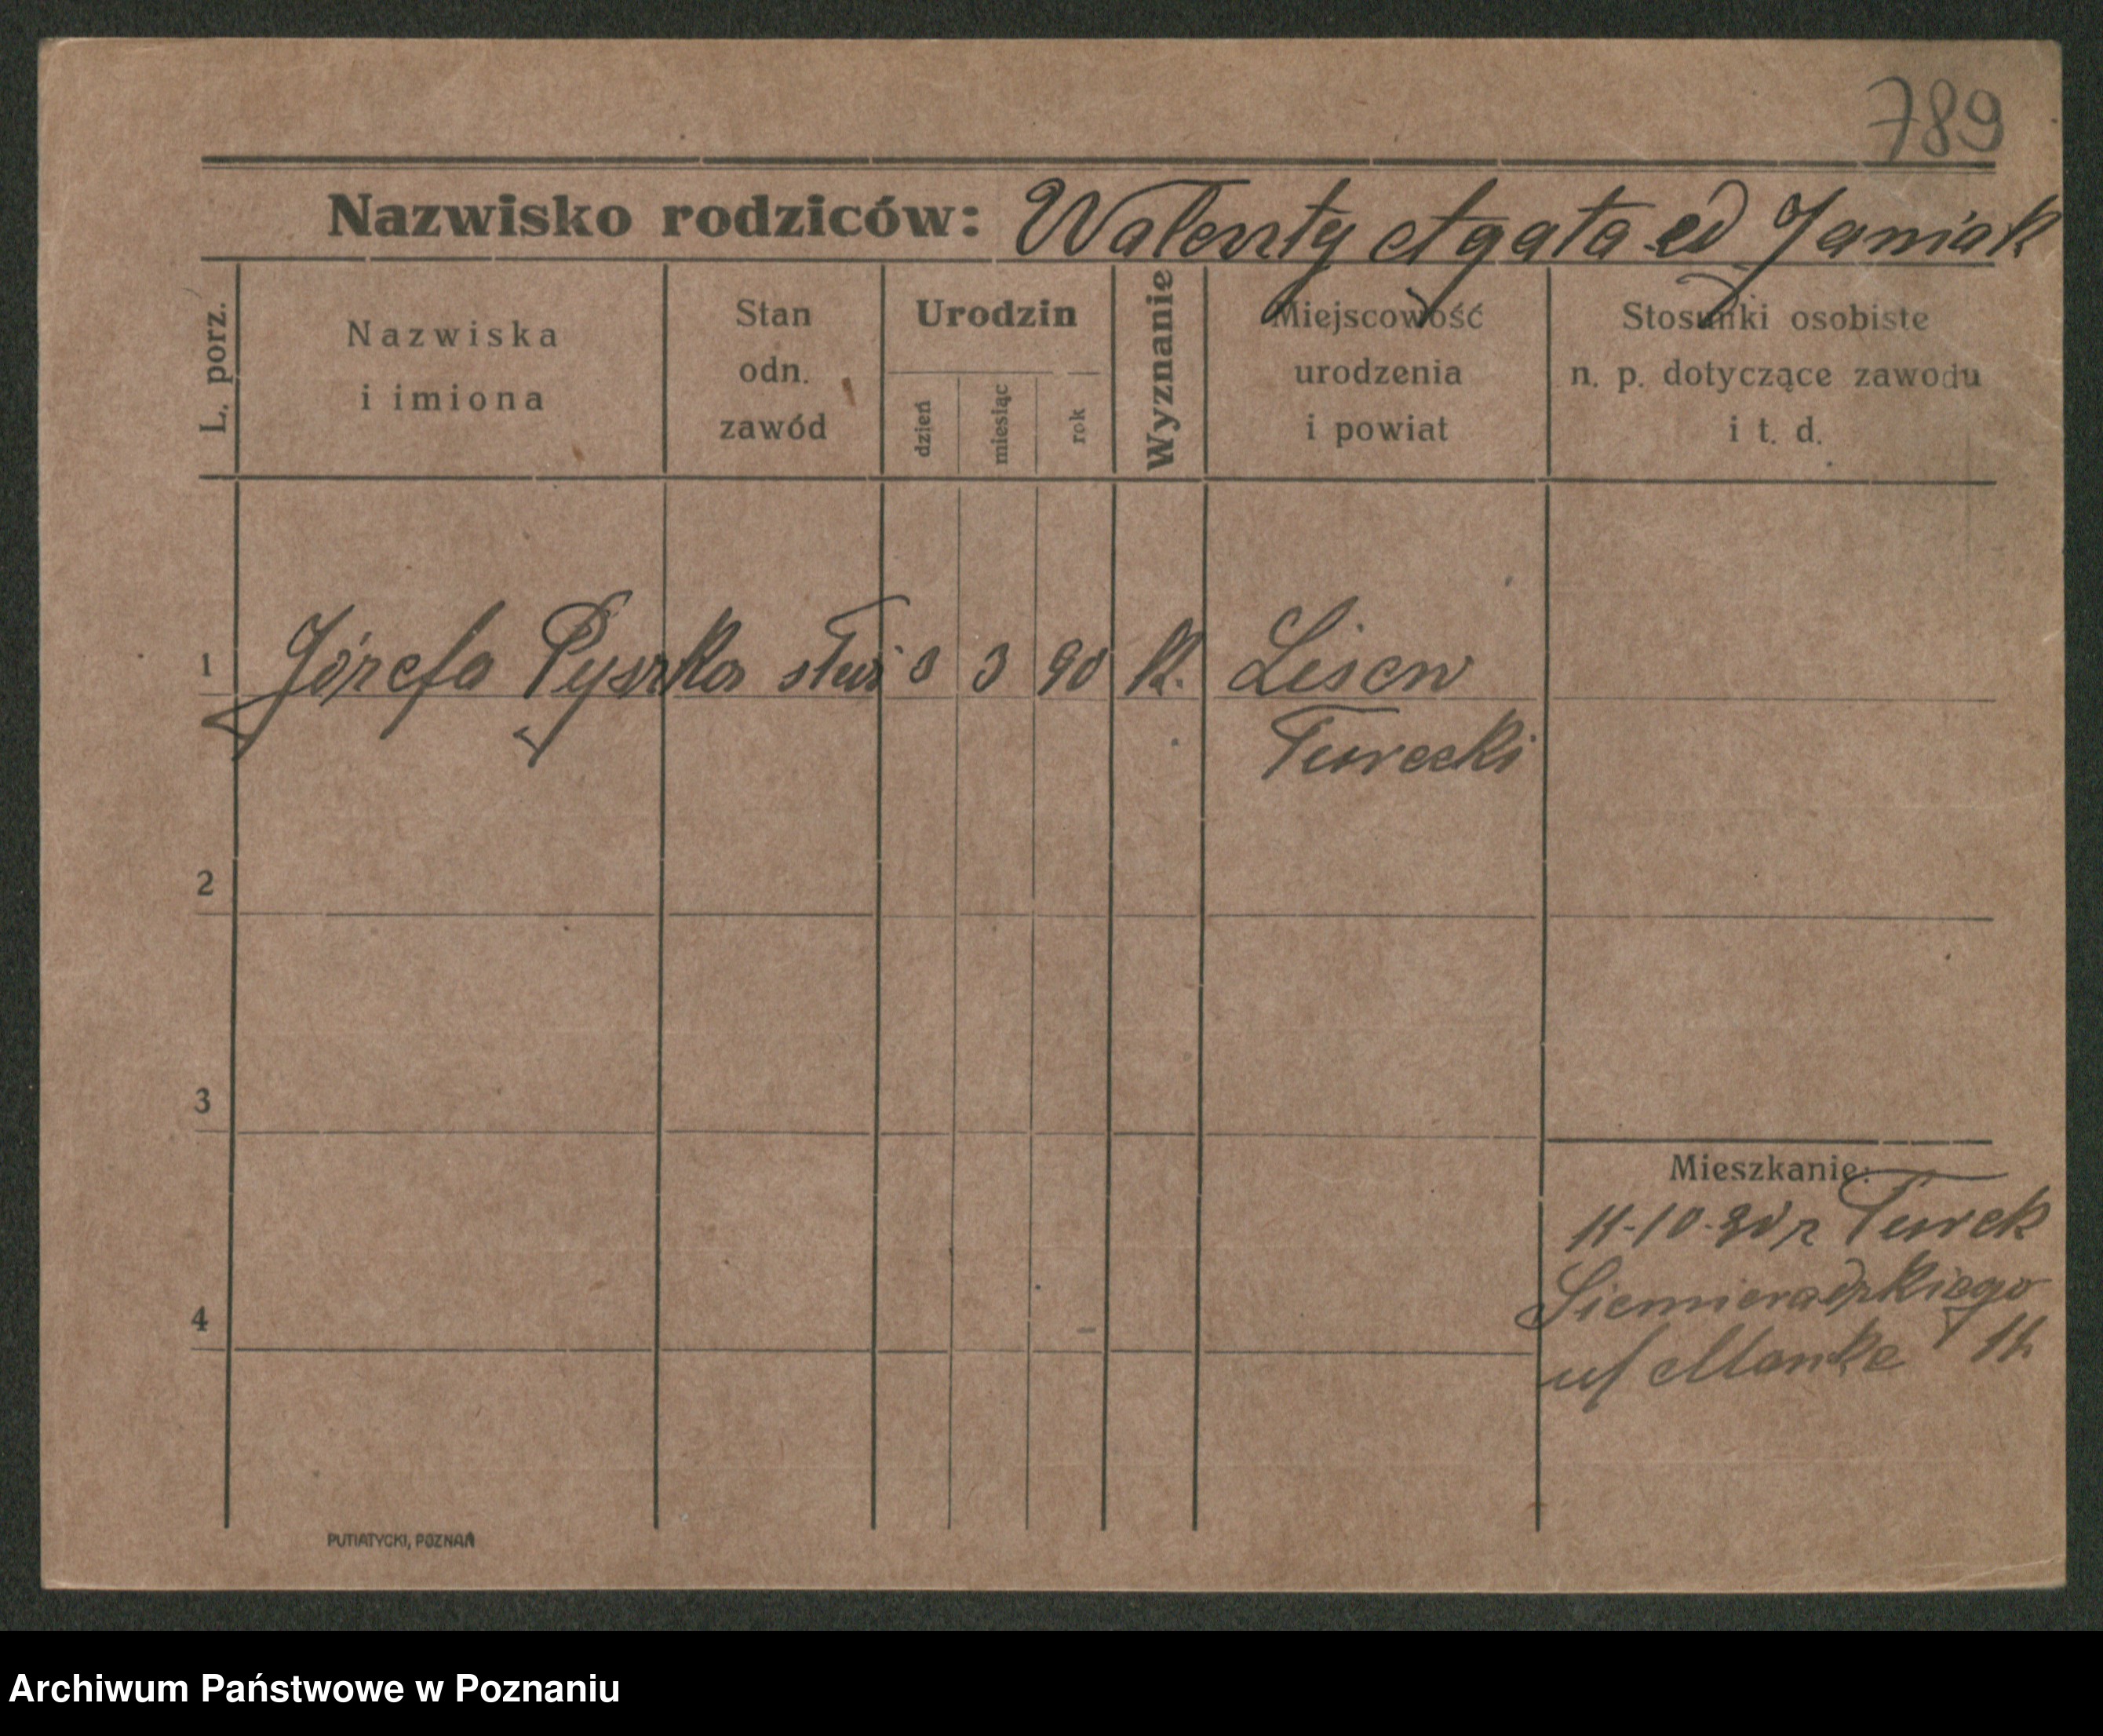 789
Nazwisko rodziców: Walenty Agata ed Janiak
L. porz.
Nazwiska
i imiona
Stan
odn.
zawód
Urodzin
dzień
miesiąc
rok
Wyznanie
Miejscowość
urodzenia
i powiat
Stosunki osobiste
n. p. dotyczące zawodu
i t. d.
1 Józefa Pyszka służ 8 3 90 K. Lisew
Turecki
2
3
Mieszkanie:
11-10-30 r Turek
Siemieradzkiego
4
uf Manke 14
PUTIATYCKI, POZNAŃ
Archiwum Państwowe w Poznaniu